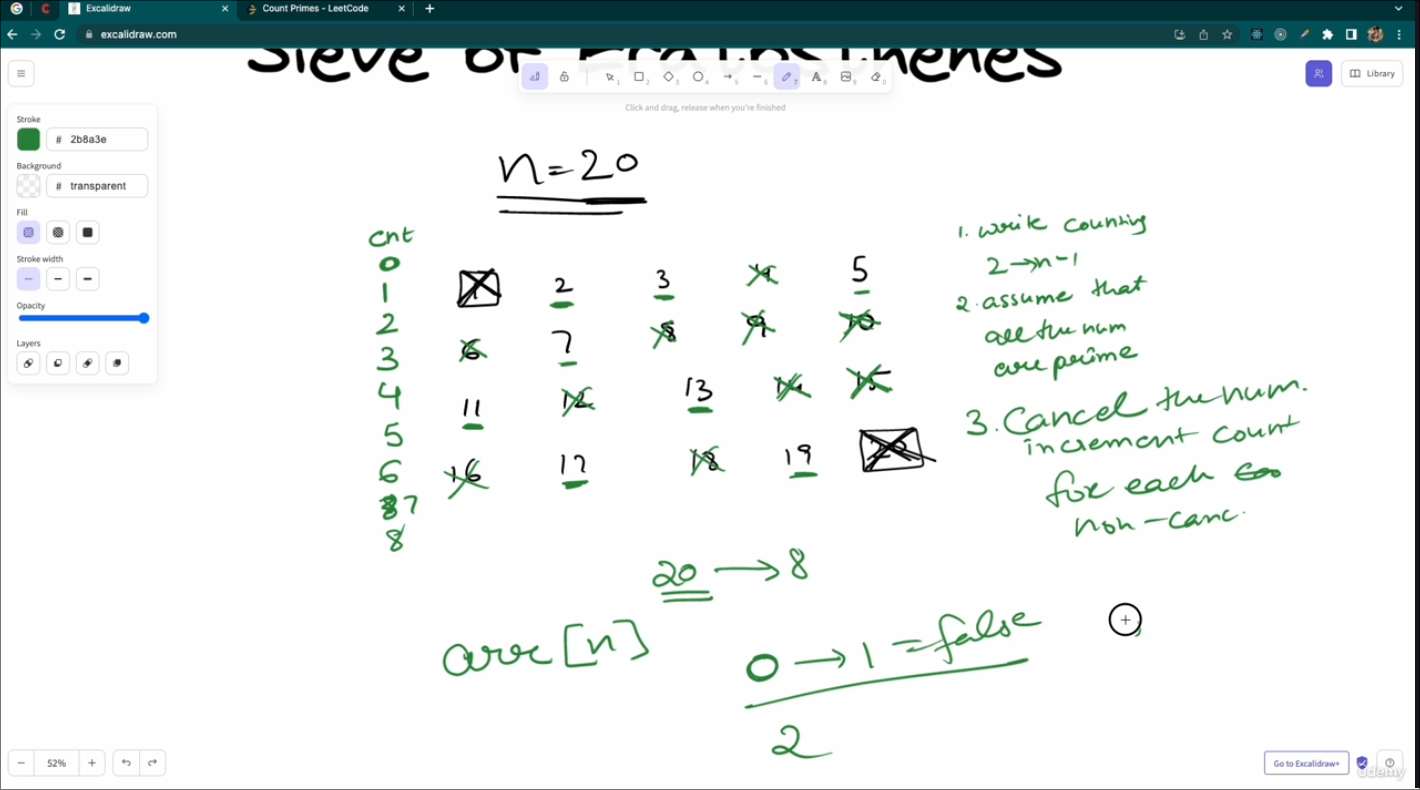 Excalidraw
Count Primes - LeetCode
excalidraw.com
Sieve of Eratosthenes
Library
Click and drag, release when you're finished
Stroke
# 2b8a3e
Background
# transparent
Fill
Stroke width
Opacity
Layers
n=20
cnt
0
1
2
3
4
5
6
7
8
1 2 3 4 5
6 7 8 9 10
11 12 13 14 15
16 17 18 19 20
1. write counting
2→n-1
2. assume that
all the num
are prime
3. Cancel the num.
increment count
for each
non-canc.
20 → 8
arr[n]
0 → 1 = false
2
52%
Go to Excalidraw+
udemy